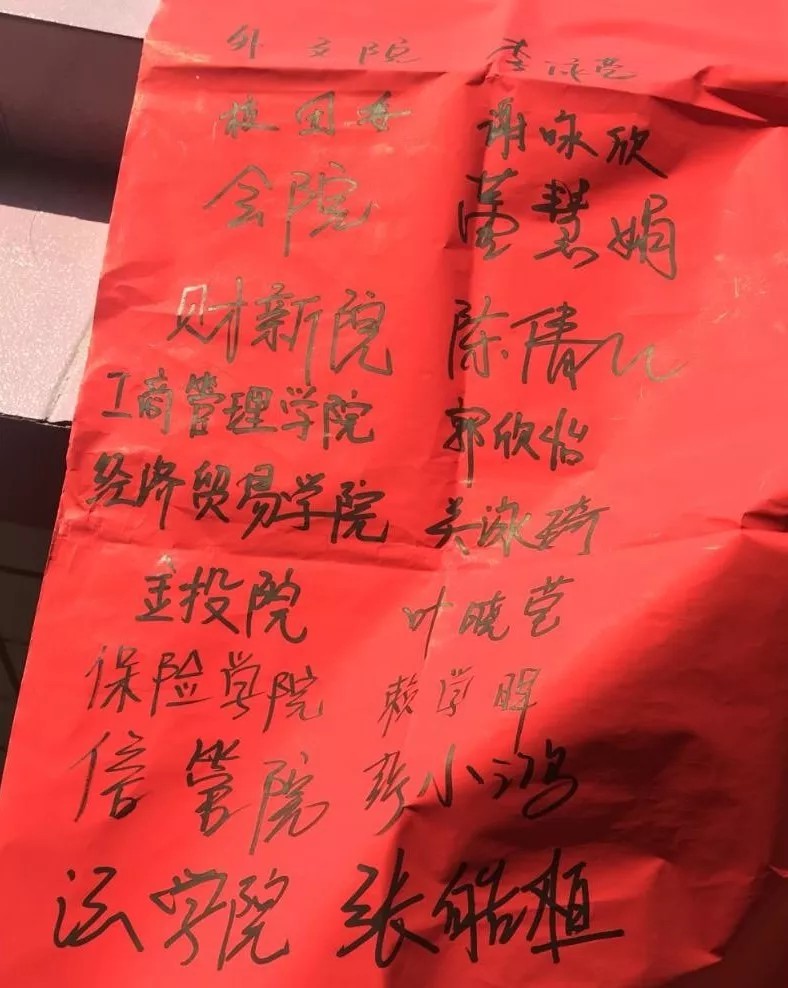 外文院 李
校团委 谢咏欣
会院 董慧娟
财新院 陈倩
工商管理学院 郭欣怡
经济贸易学院 吴泳琦
金投院 叶晓莹
保险学院 赖学晖
信管院 小鸿
法学院 张皓植